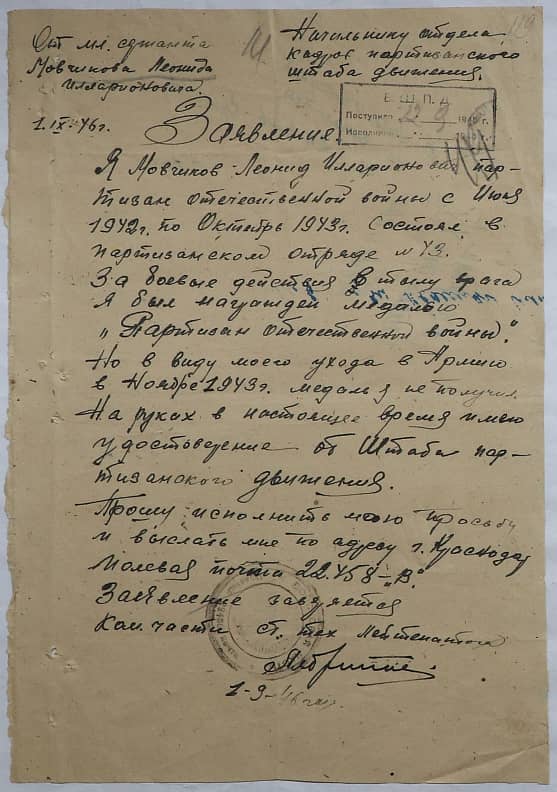 От мл. сджанта
Мовчикова Леонида
Илларионовича.
Начальнику отдела
кадров партизанского
штаба движения.
Б. Ш. П. Д.
Поступило 22 9 194 г.
Исполнено
1.IX-46г.
Заявление.
Я Мовчиков Леонид Илларионович пар-
тизан отечественной войны с Июня
1942г. по Октябрь 1943г. состоял в
партизанском отряде N 43.
За боевые действия в тылу врага
я был награжден медалью
„Партизан отечественной войны".
Но в виду моего ухода в Армию
в Ноябре 1943г. медаль я не получил.
На руках в настоящее время имею
удостоверение от Штаба пар-
тизанского движения.
Прошу исполнить мою просьбу
и выслать мне по адресу г. Краснодар
Полевая почта 22.458 „В".
Заявление заверяется
Ком. части ст. тех лейтенантом
1-9-46